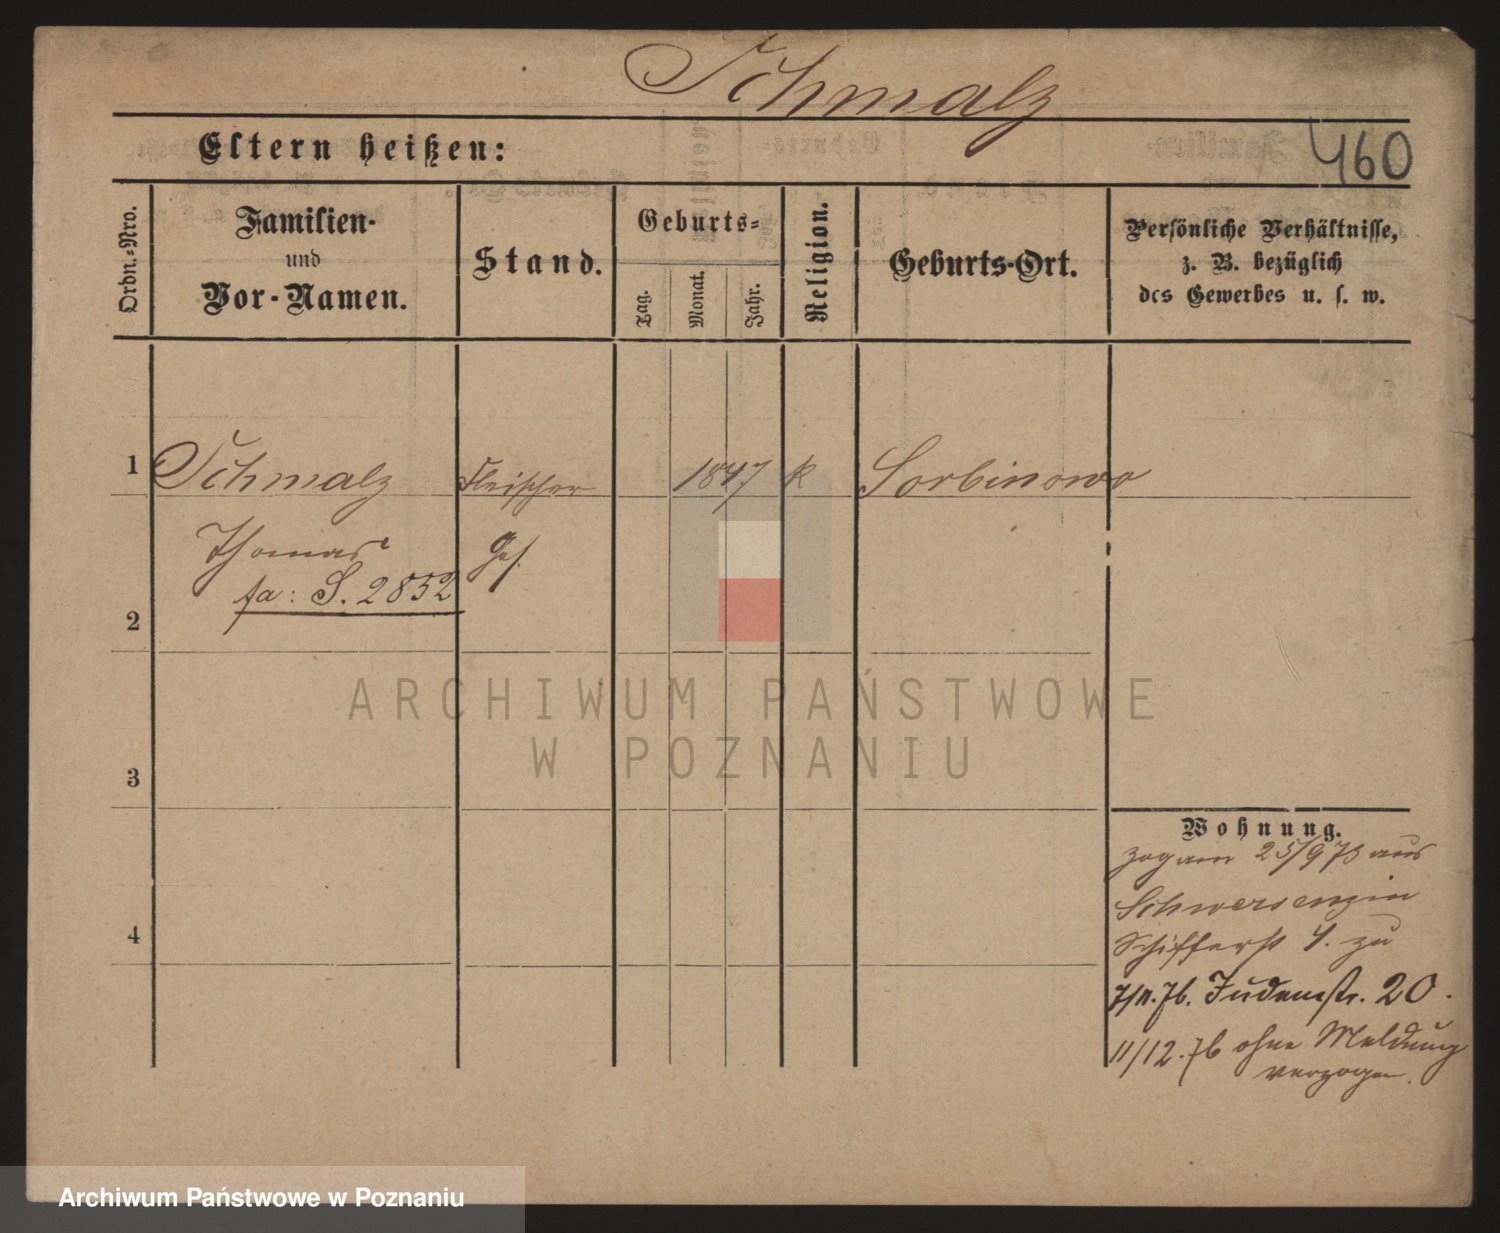 Schmalz
Eltern heißen:
460
Ordn.-Nro.
Familien-
und
Vor-Namen.
Stand.
Geburts-
Tag.
Monat.
Jahr.
Religion.
Geburts-Ort.
Persönliche Verhältnisse,
z. B. bezüglich
des Gewerbes u. s. w.
1 Schmalz Fleischer 1847 k Sorbinowo
Thomas Ges.
fa: S. 2852
2
3
4
Wohnung.
zog am 25/9 73 aus
Schwersenz in
Schifferst 4. zu
Judenstr. 20.
11/12.76 ohne Meldung
verzogen.
ARCHIWUM PAŃSTWOWE
W POZNANIU
Archiwum Państwowe w Poznaniu